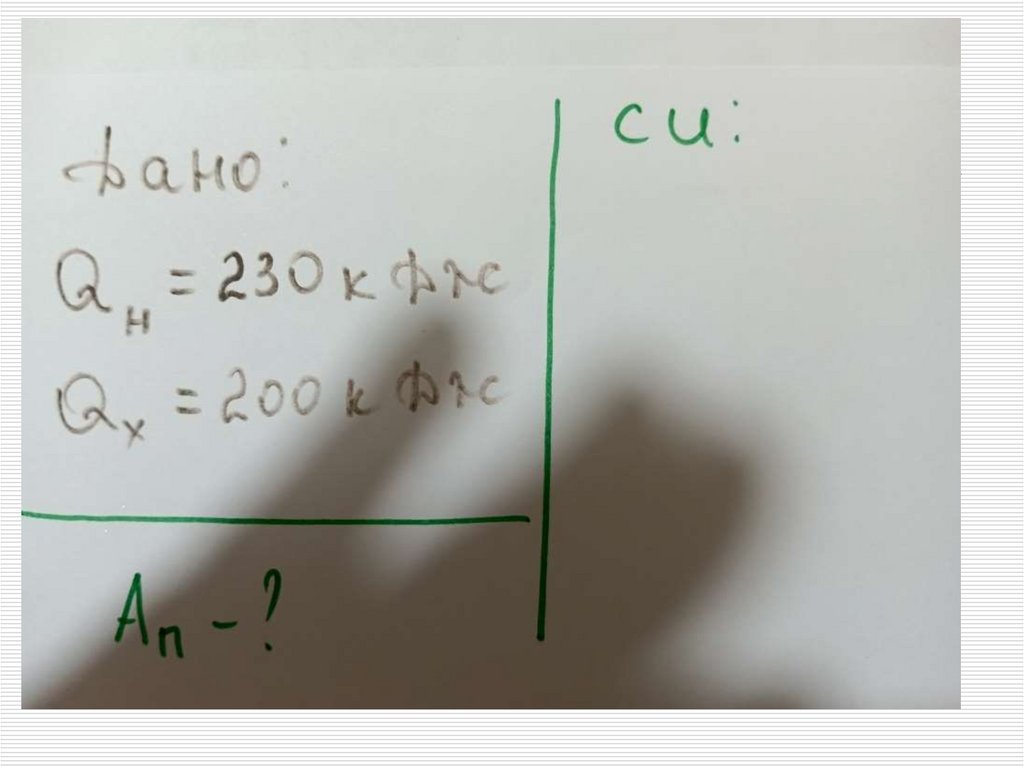 Дано:
Qн = 230 кДж
Qх = 200 кДж
Aп - ?
си: